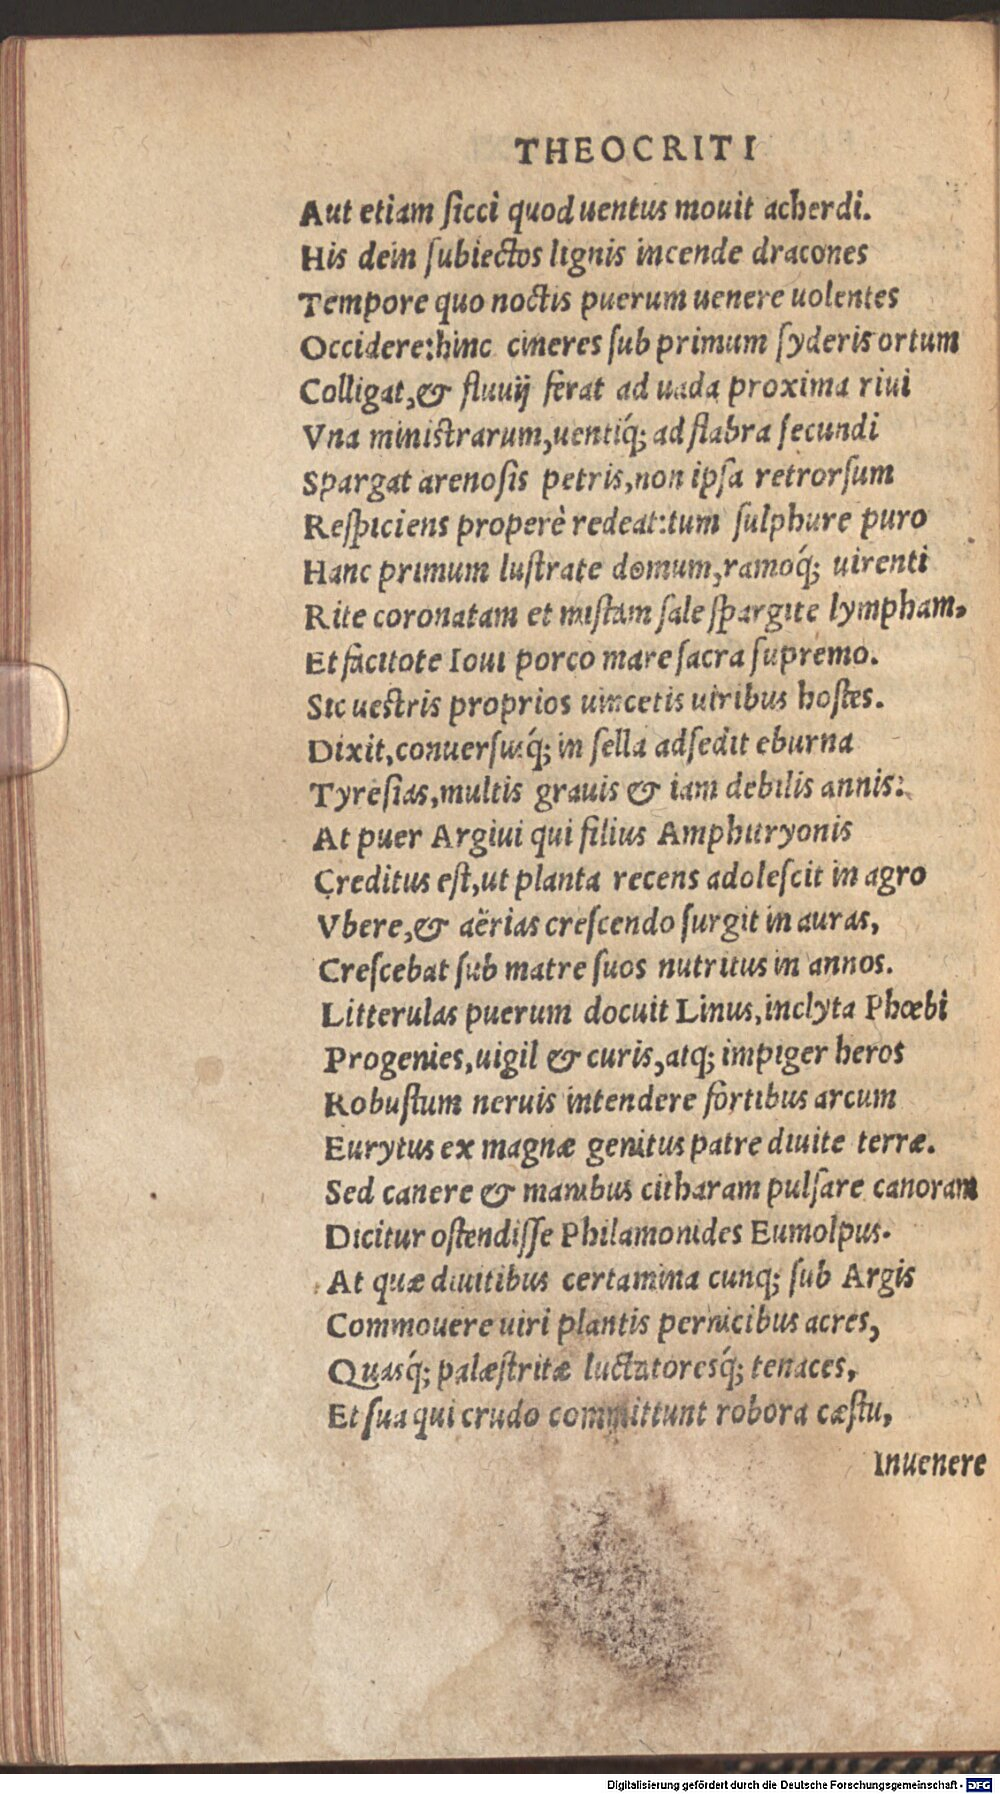 THEOCRITI
Aut etiam ſicci quod uentus mouit acherdi.
His dein ſubiectos lignis incende dracones
Tempore quo noctis puerum uenere uolentes
Occidere: hinc cineres ſub primum ſyderis ortum
Colligat, & fluuij ferat ad uada proxima riui
Vna miniſtrarum, uentiq́; ad flabra ſecundi
Spargat arenoſis petris, non ipſa retrorſum
Reſpiciens properè redeat: tum ſulphure puro
Hanc primum luſtrate domum, ramoq́; uirenti
Rite coronatam et miſtam ſale ſpargite lympham.
Et facitote Ioui porco mare ſacra ſupremo.
Sic ueſtris proprios uincetis uiribus hoſtes.
Dixit, conuerſuq́; in ſella adſedit eburna
Tyreſias, multis grauis & iam debilis annis:
At puer Argiui qui filius Amphitryonis
Creditus eſt, ut planta recens adoleſcit in agro
Vbere, & aërias creſcendo ſurgit in auras,
Creſcebat ſub matre ſuos nutritus in annos.
Litterulas puerum docuit Linus, inclyta Phœbi
Progenies, uigil & curis, atq; impiger heros
Robuſtum neruis intendere fortibus arcum
Eurytus ex magnæ genitus patre diuite terræ.
Sed canere & manibus citharam pulſare canoram
Dicitur oſtendiſſe Philamonides Eumolpus.
At quæ diuitibus certamina cunq; ſub Argis
Commouere uiri plantis pernicibus acres,
Quasq́; palæſtritæ luctatoresq́; tenaces,
Et ſua qui crudo committunt robora cæſtu,
Inuenere
Digitalisierung gefördert durch die Deutsche Forschungsgemeinschaft - DFG